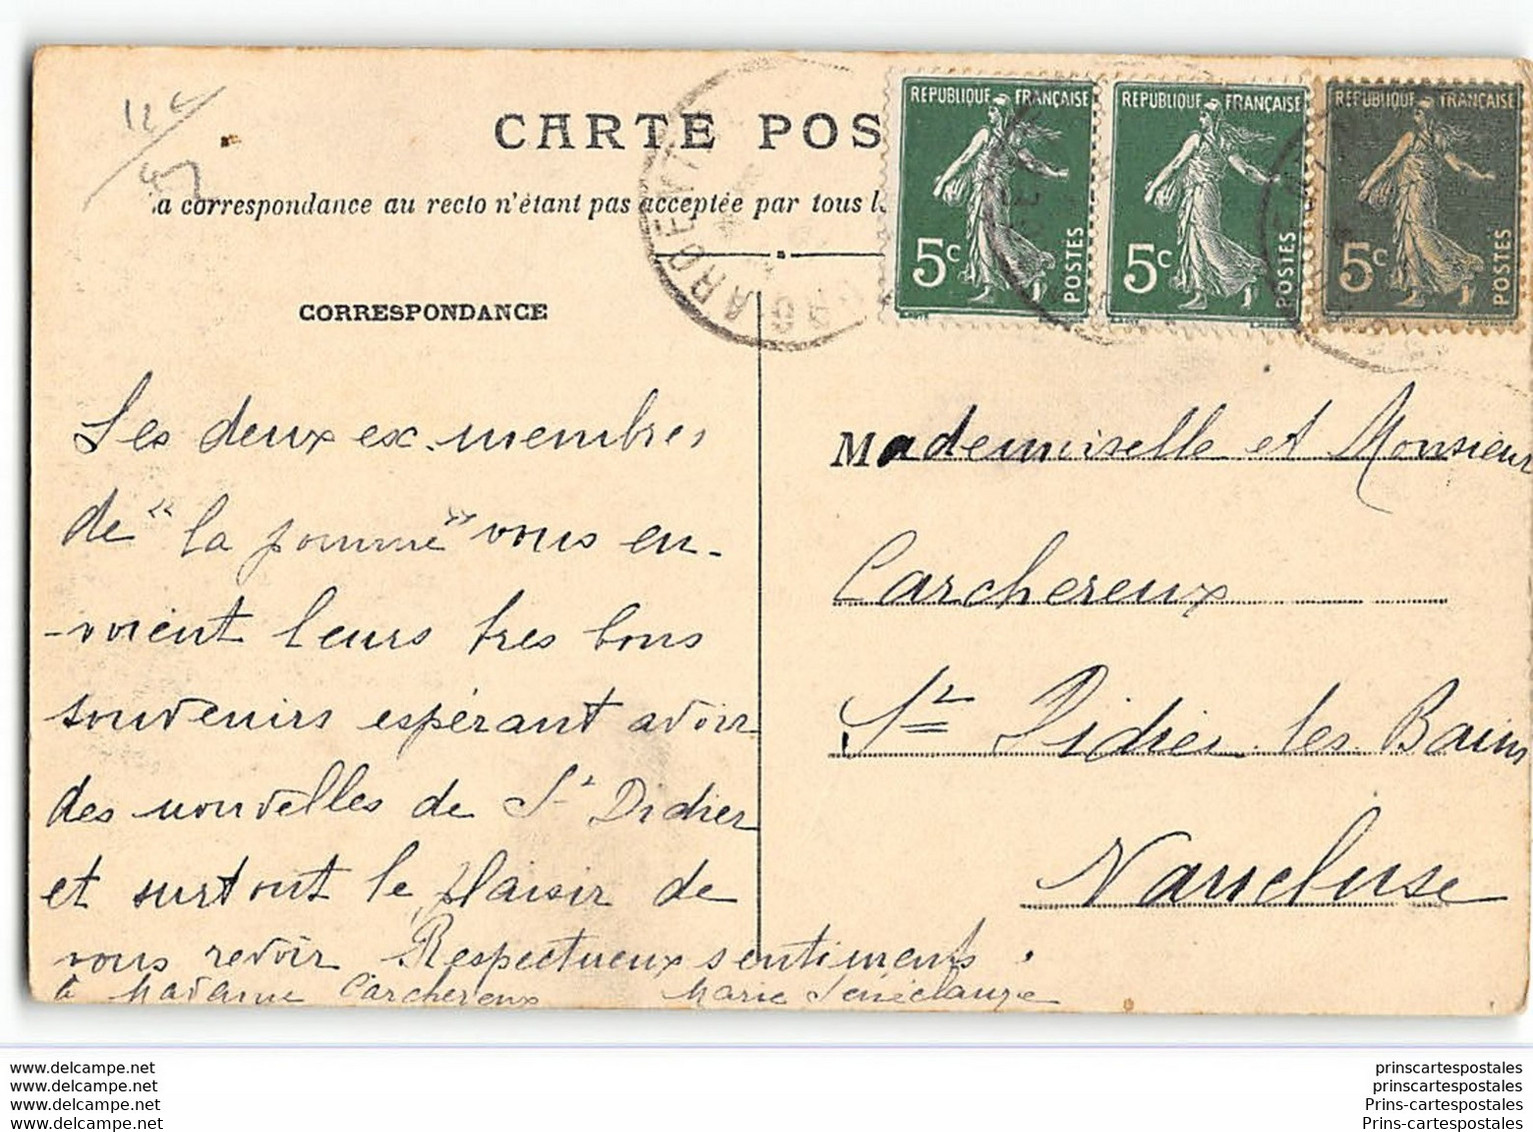 CARTE POS
la correspondance au recto n'étant pas acceptée par tous l
REPUBLIQUE FRANÇAISE
5c
POSTES
REPUBLIQUE FRANÇAISE
5c
POSTES
REPUBLIQUE FRANÇAISE
5c
POSTES
BOURG ARGENTAL
CORRESPONDANCE
Les deux ex-membres
de "la pomme" vous en-
-voient leurs tres bons
souvenirs espérant avoir
des nouvelles de St Didier
et surtout le plaisir de
vous revoir Respectueux sentiments.
à Madame Carchereux Marie Sénéclauze
Mademoiselle et Monsieur
Carchereux
St Didier les Bains
Vaucluse
www.delcampe.net
www.delcampe.net
www.delcampe.net
www.delcampe.net
prinscartespostales
prinscartespostales
Prins-cartespostales
Prins-cartespostales